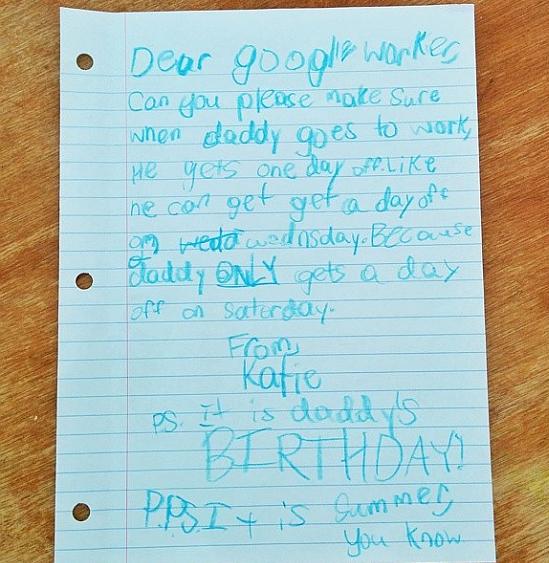 Dear google worker,
Can you please make sure
when daddy goes to work,
He gets one day off. Like
he can get get a day off
on wednsday. Because
daddy ONLY gets a day
off on saturday.
From,
Katie
P.S. It is daddy's
BIRTHDAY!
P.P.S. It is summer,
you know